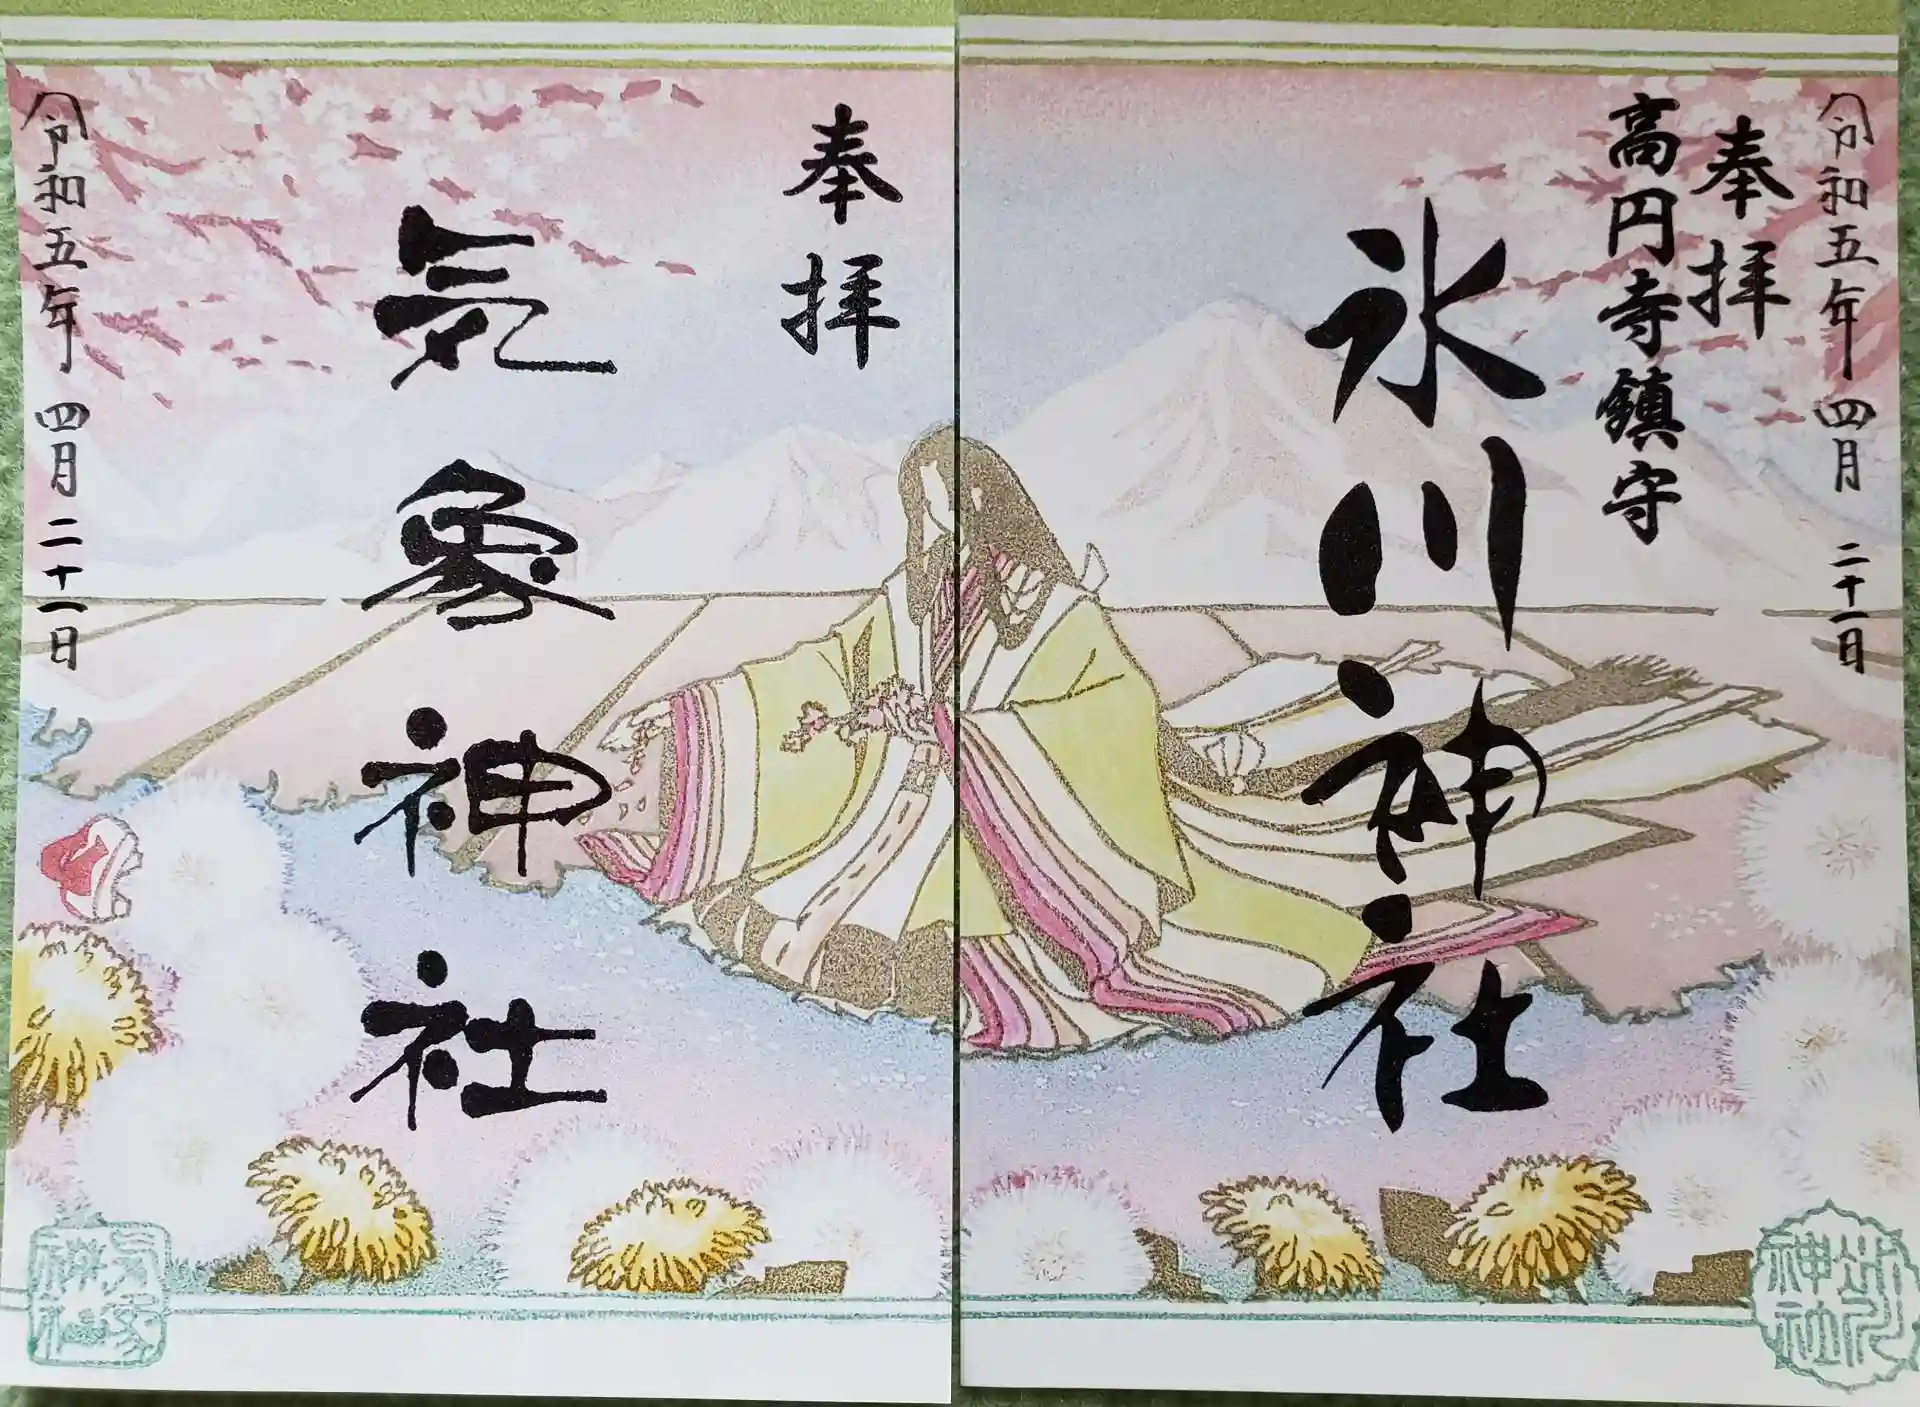 令和五年 四月 二十一日
奉拝
高円寺鎮守
氷川神社
氷川神社
奉拝
気象神社
令和五年 四月 二十一日
気象神社